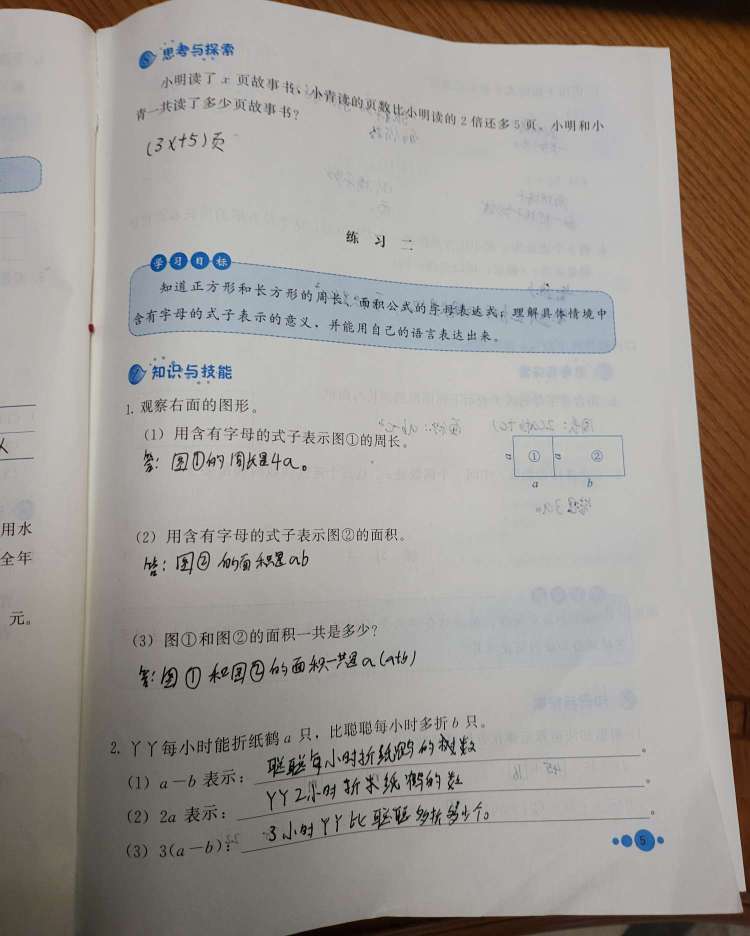 思考与探索
小明读了 x 页故事书、小青读的页数比小明读的 2 倍还多 5 页。小明和小
青一共读了多少页故事书?
(3x+5)页
练 习 二
学习目标
知道正方形和长方形的周长、面积公式的字母表达式;理解具体情境中
含有字母的式子表示的意义，并能用自己的语言表达出来。
知识与技能
1. 观察右面的图形。
(1) 用含有字母的式子表示图①的周长。
答: 图①的周长是4a。
a ① a ②
a b
(2) 用含有字母的式子表示图②的面积。
答: 图② 的面积是ab
用水
全年
元。
(3) 图①和图②的面积一共是多少?
答: 图① 和图②的面积一共是a(a+b)
2. 丫丫每小时能折纸鹤 a 只，比聪聪每小时多折 b 只。
(1) a-b 表示: 聪聪每小时折纸鹤的数。
(2) 2a 表示: 丫丫2小时折纸鹤的数。
(3) 3(a-b): 3小时丫丫比聪聪多折多少个。
5